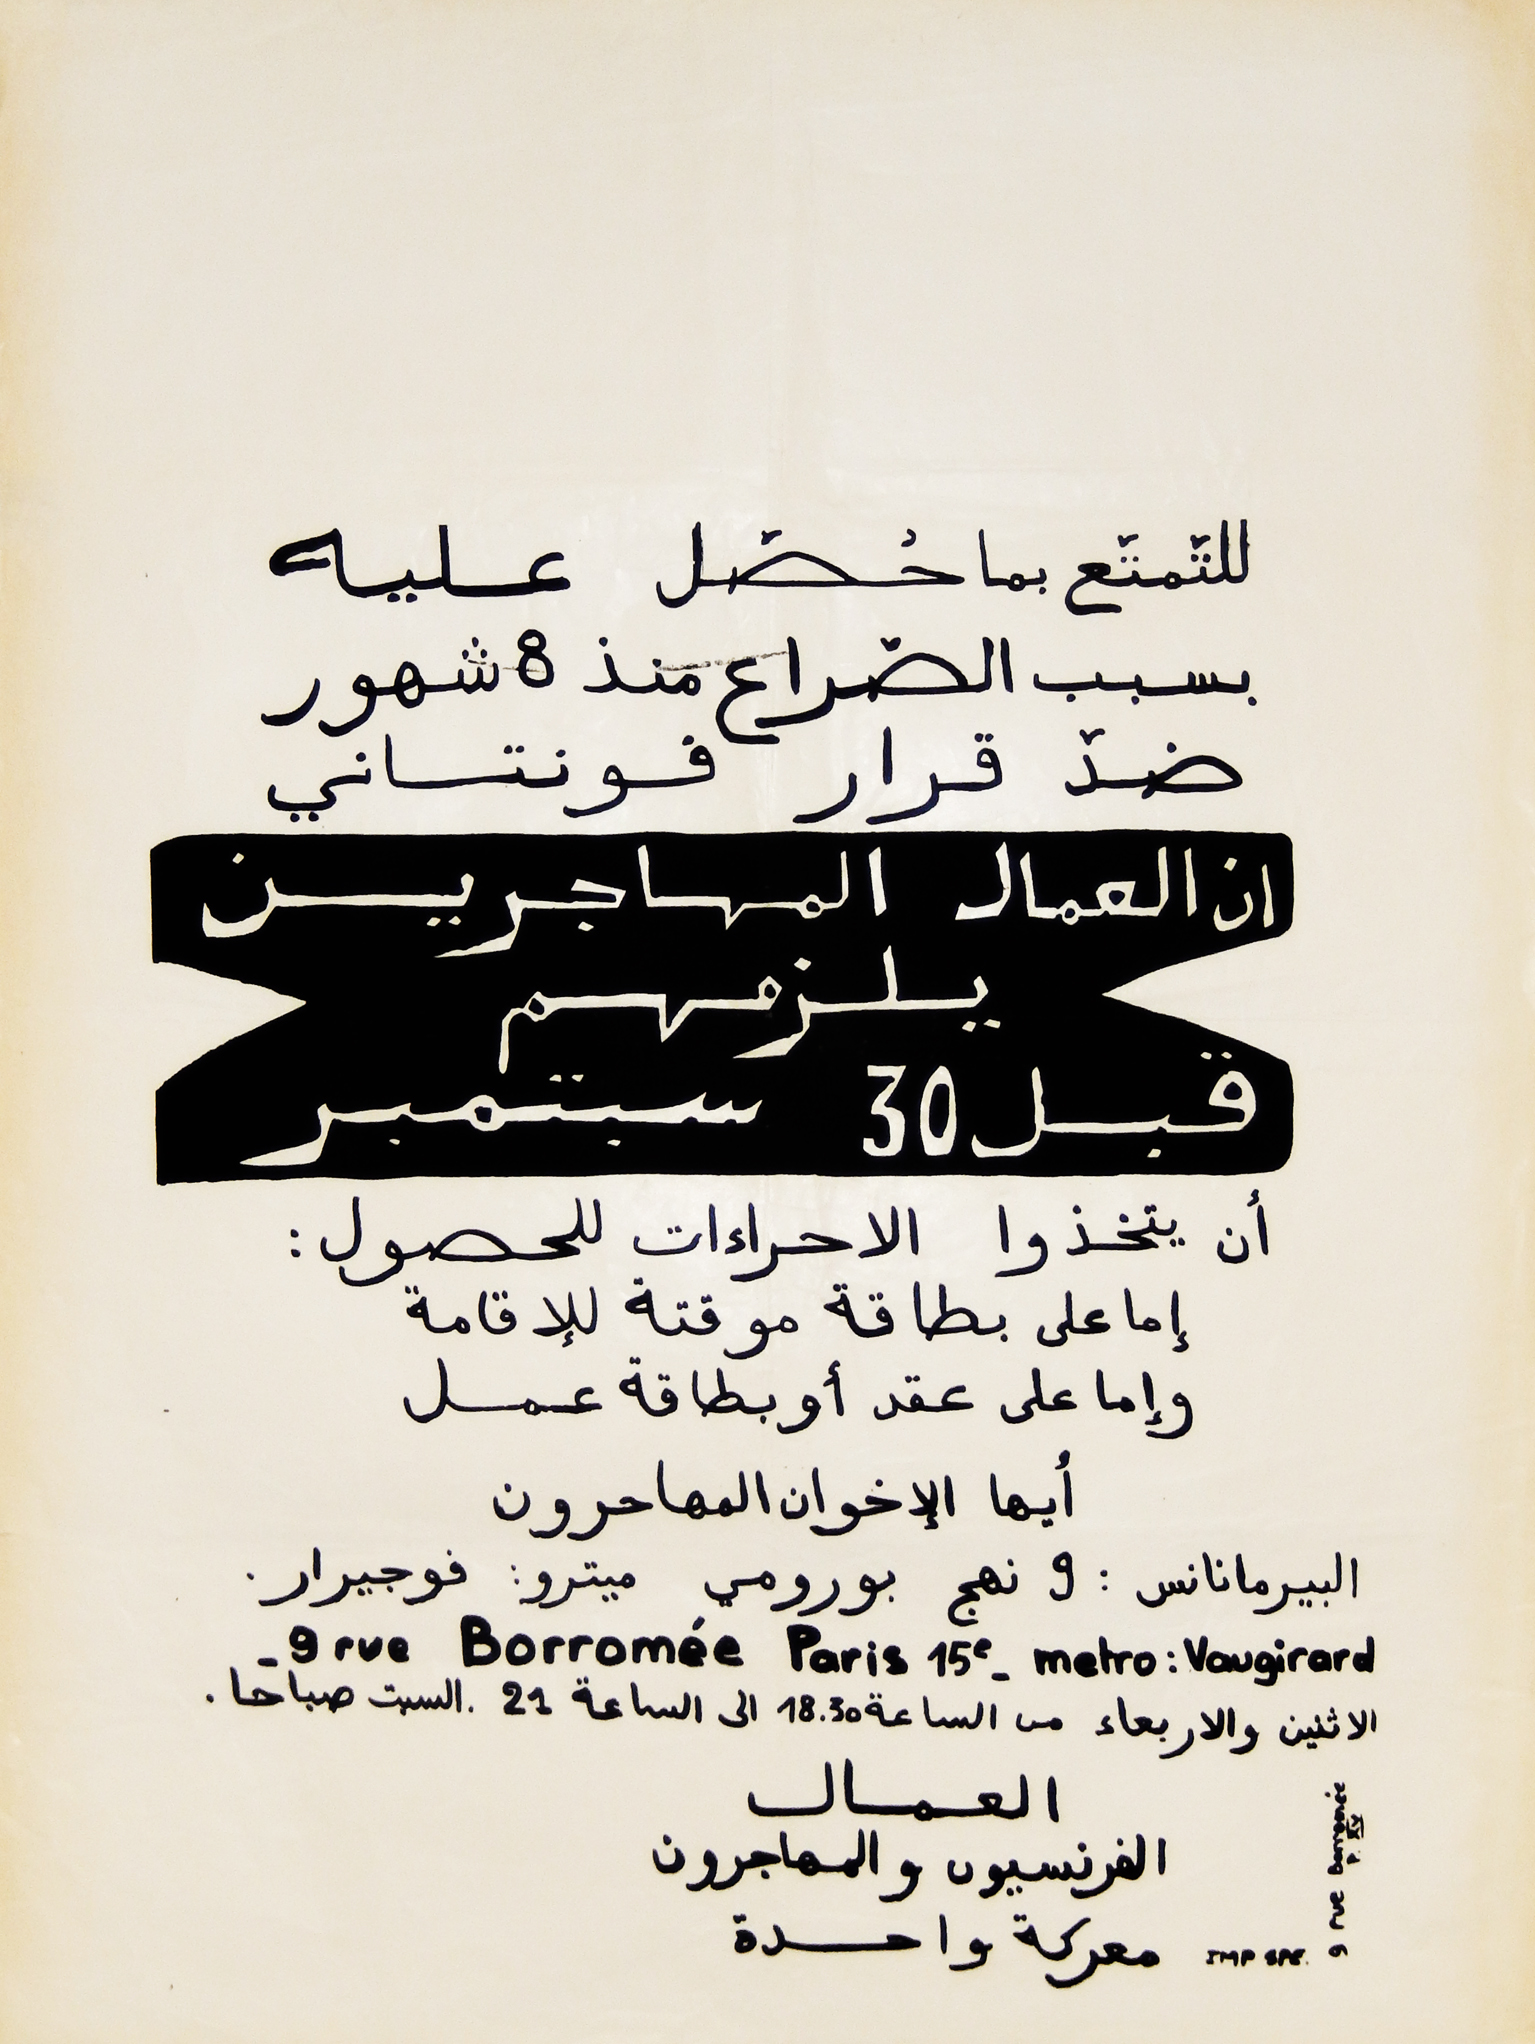 للتّمتّع بما حُصّل عليه
بسبب الصّراع منذ 8 شهور
ضدّ قرار فونتاني
ان العمال المهاجرين
يلزمهم
قبل 30 سبتمبر
أن يتخذوا الاحراءات للحصول :
إما على بطاقة موقتة للإقامة
وإما على عقد أو بطاقة عمل
أيها الإخوان المهاحرون
البيرمانانس : 9 نهج بورومي ميترو : فوجيرار .
_ 9 rue Borromée Paris 15e _ metro : Vaugirard
الاثنين والاربعاء من الساعة 18.30 الى الساعة 21 . السبت صباحا .
العمال
الفرنسيون والمهاجرون
معركة واحدة
IMP SPE.
9 rue Borromée
P. XV